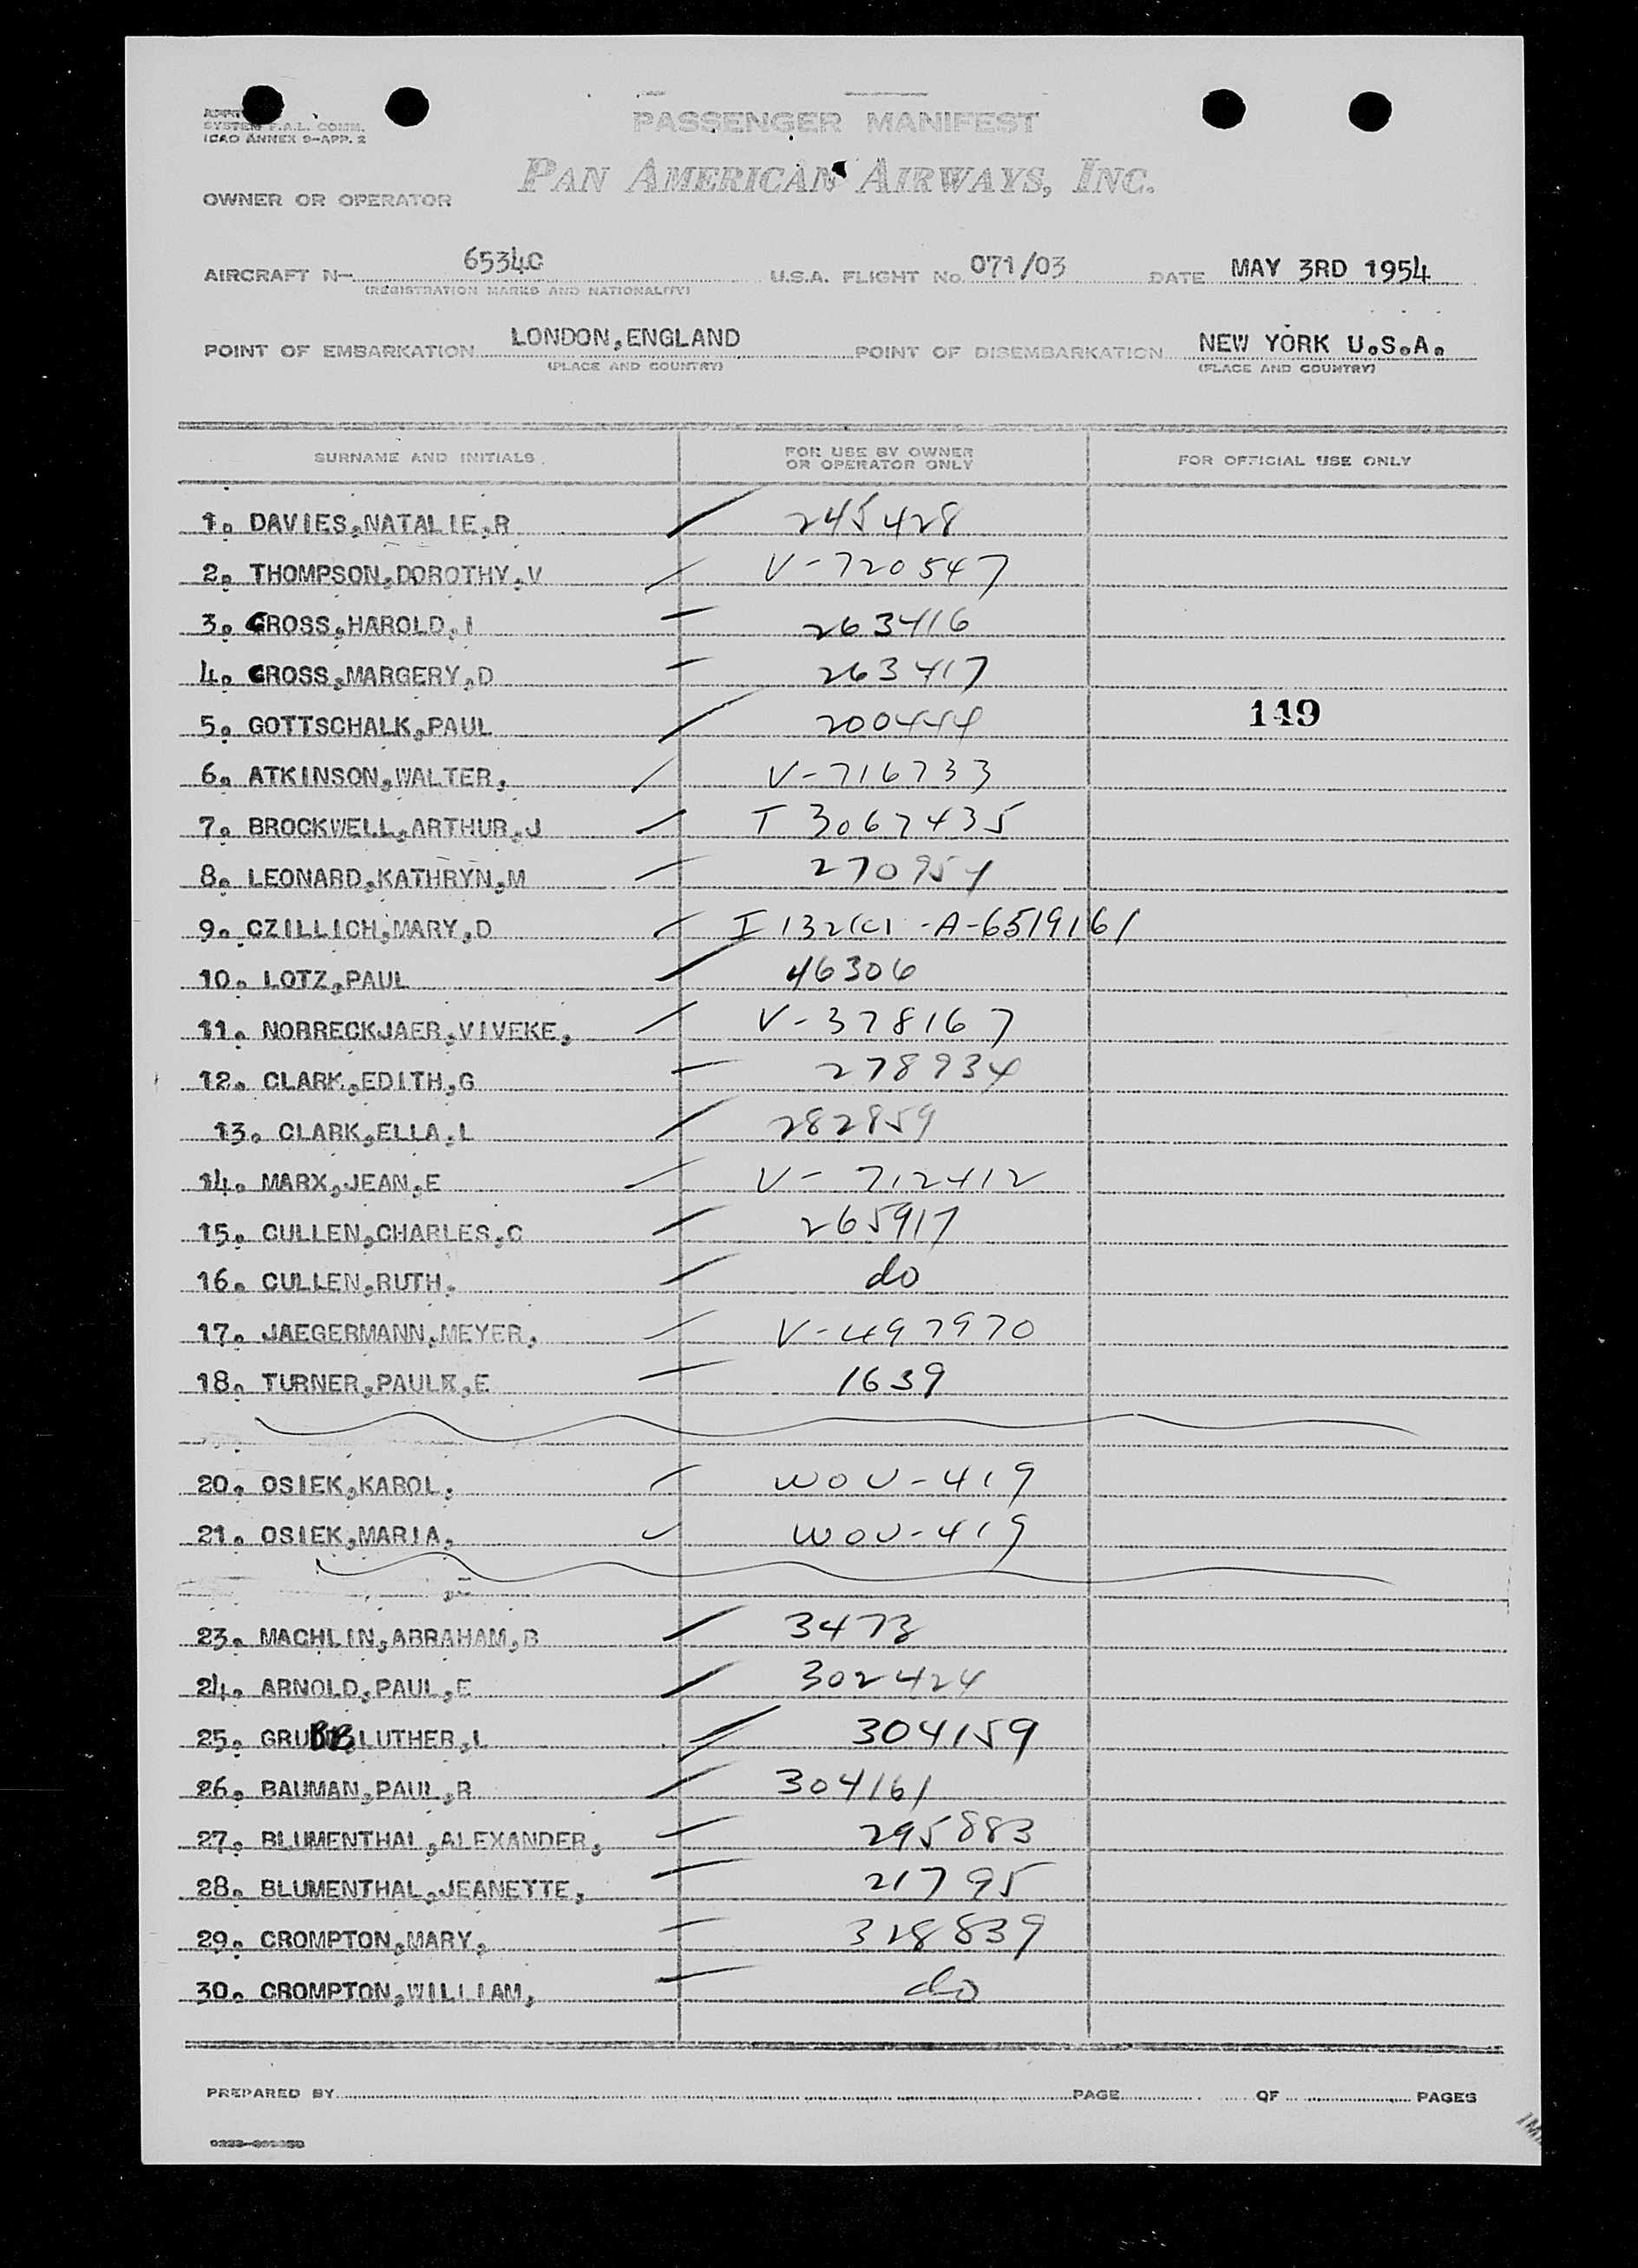 SYSTEM F.A.L. COMM.
ICAO ANNEX 9-APP. 2
PASSENGER MANIFEST
PAN AMERICAN AIRWAYS, INC.
OWNER OR OPERATOR
AIRCRAFT N- 65340 U.S.A. FLIGHT No. 071/03 DATE MAY 3RD 1954
(REGISTRATION MARKS AND NATIONALITY)
POINT OF EMBARKATION LONDON,ENGLAND POINT OF DISEMBARKATION NEW YORK U.S.A.
(PLACE AND COUNTRY) (PLACE AND COUNTRY)
SURNAME AND INITIALS FOR USE BY OWNER OR OPERATOR ONLY FOR OFFICIAL USE ONLY
1. DAVIES,NATALIE,R 245428
2. THOMPSON,DOROTHY,V V-720547
3. GROSS,HAROLD,I 263416
4. GROSS,MARGERY,D 263417
5. GOTTSCHALK,PAUL 200444 149
6. ATKINSON,WALTER, V-716733
7. BROCKWELL,ARTHUR,J T 3067435
8. LEONARD,KATHRYN,M 270954
9. CZILLICH,MARY,D I 132(c) -A-6519161
10. LOTZ,PAUL 46306
11. NORRECKJAER,VIVEKE, V-378167
12. CLARK,EDITH,G 278934
13. CLARK,ELLA,L 282859
14. MARX,JEAN,E V- 712412
15. CULLEN,CHARLES,C 265917
16. CULLEN,RUTH. do
17. JAEGERMANN,MEYER, V-497970
18. TURNER,PAULX,E 1639
20. OSIEK,KAROL, WOU-419
21. OSIEK,MARIA, WOU-419
23. MACHLIN,ABRAHAM,B 3473
24. ARNOLD,PAUL,E 302424
25. GRUBB,LUTHER,L 304159
26. BAUMAN,PAUL,R 304161
27. BLUMENTHAL,ALEXANDER, 295883
28. BLUMENTHAL,JEANETTE, 21795
29. CROMPTON,MARY, 328839
30. CROMPTON,WILLIAM, do
PREPARED BY PAGE OF PAGES